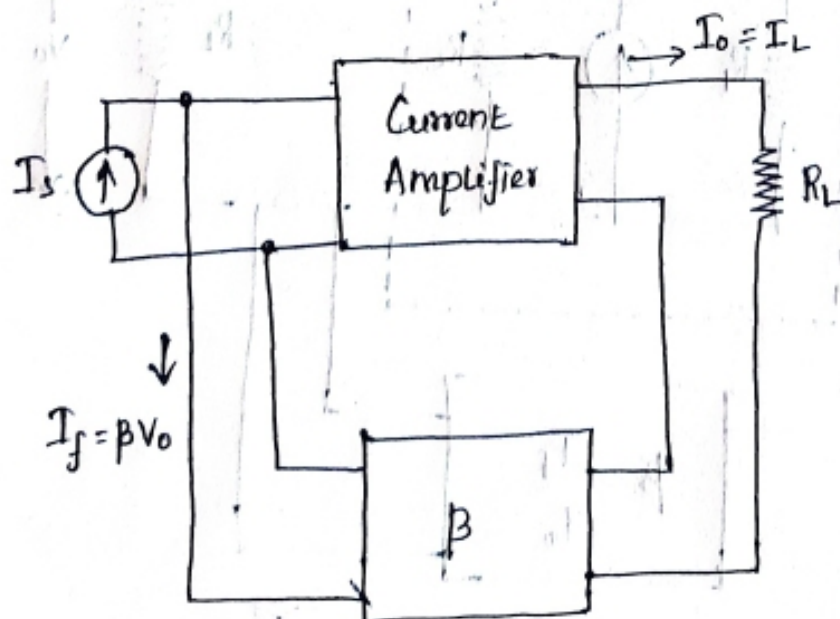 I₀ = I_L
Current
Amplifier
I_s
R_L
I_f = βV₀
β